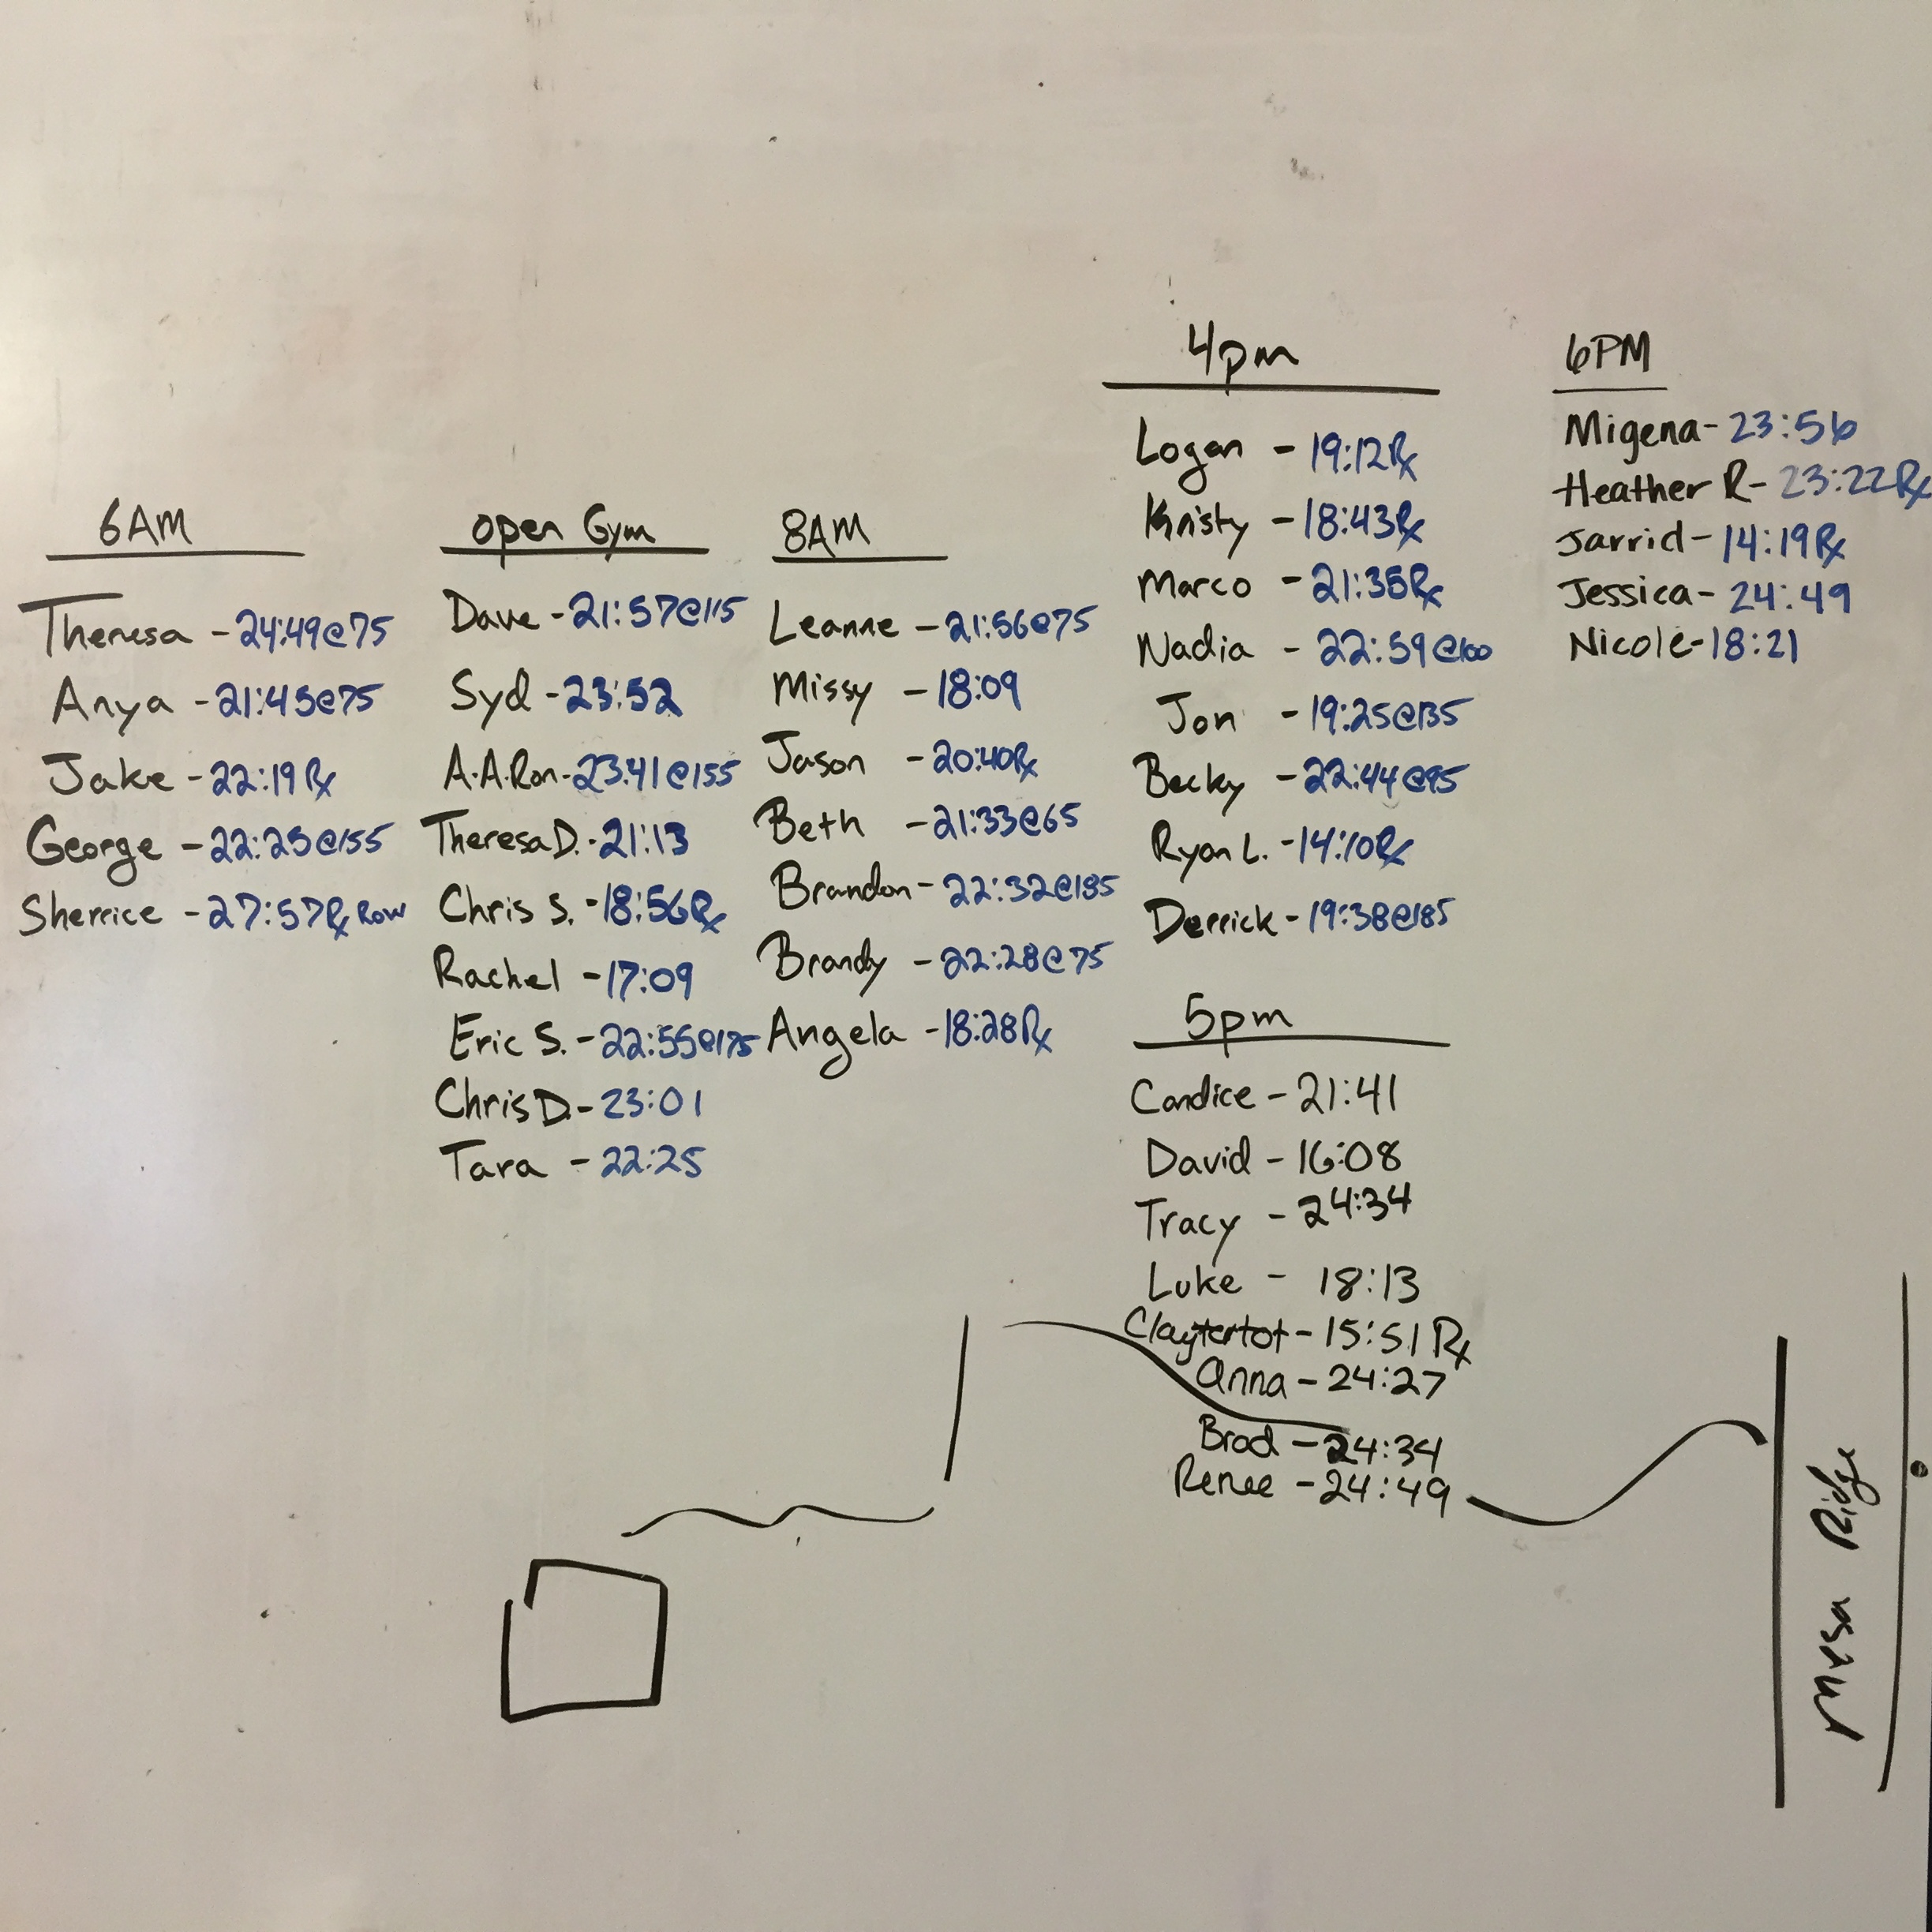 6AM
Theresa - 24:49@75
Anya - 21:45@75
Jake - 22:19 Rx
George - 22:25@155
Sherrice - 27:57 Rx Row
open Gym
Dave - 21:57@115
Syd - 23:52
A.A.Ron - 23:41@155
Theresa D. - 21:13
Chris S. - 18:56Rx
Rachel - 17:09
Eric S. - 22:55@175
Chris D. - 23:01
Tara - 22:25
8AM
Leanne - 21:56@75
Missy - 18:09
Jason - 20:40Rx
Beth - 21:33@65
Brandon - 22:32@185
Brandy - 22:28@75
Angela - 18:28Rx
4pm
Logan - 19:12Rx
Kristy - 18:43Rx
Marco - 21:35Rx
Nadia - 22:59@100
Jon - 19:25@135
Becky - 22:44@95
Ryan L. - 14:10Rx
Derrick - 19:38@185
5pm
Candice - 21:41
David - 16:08
Tracy - 24:34
Luke - 18:13
Claytertot - 15:51 Rx
Anna - 24:27
Brad - 24:34
Renee - 24:49
6PM
Migena - 23:56
Heather R - 23:22Rx
Jarrid - 14:19Rx
Jessica - 24:49
Nicole - 18:21